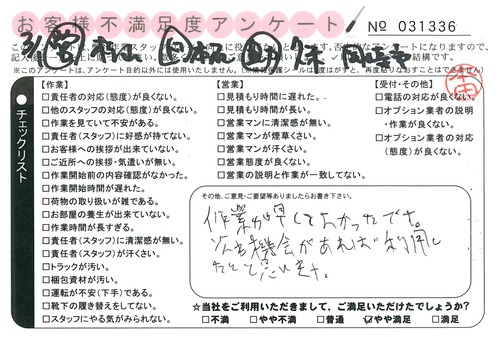 お客様不満足度アンケート
No 031336
※このアンケートは、アンケート目的以外には使用いたしません。
チェックリスト
【作業】
□責任者の対応(態度)が良くない。
□他のスタッフの対応(態度)が良くない。
□作業を見ていて不安がある。
□責任者(スタッフ)に好感が持てない。
□お客様への挨拶が出来ていない。
□ご近所への挨拶・気遣いが無い。
□作業開始前の内容確認がなかった。
□作業開始時間が遅れた。
□荷物の取り扱いが雑である。
□お部屋の養生が出来ていない。
□作業時間が長すぎる。
□責任者(スタッフ)に清潔感が無い。
□責任者(スタッフ)が汗くさい。
□トラックが汚い。
□梱包資材が汚い。
□運転が不安(下手)である。
□靴下の履き替えをしてない。
□スタッフにやる気がみられない。
【営業】
□見積もり時間に遅れた。
□見積もり時間が長い。
□営業マンに清潔感が無い。
□営業マンが煙草くさい。
□営業マンが汗くさい。
□営業態度が良くない。
□営業の説明と作業が一致してない。
【受付・その他】
□電話の対応が良くない。
□オプション業者の説明
・作業が良くない。
□オプション業者の対応
(態度)が良くない。
その他、ご意見・ご要望等ありましたらお書き下さい。
作業が早くてよかったです。
次も機会があれば利用し
たいと思います。
☆当社をご利用いただきまして、ご満足いただけたでしょうか?
□不満 □やや不満 □普通 ☑やや満足 □満足